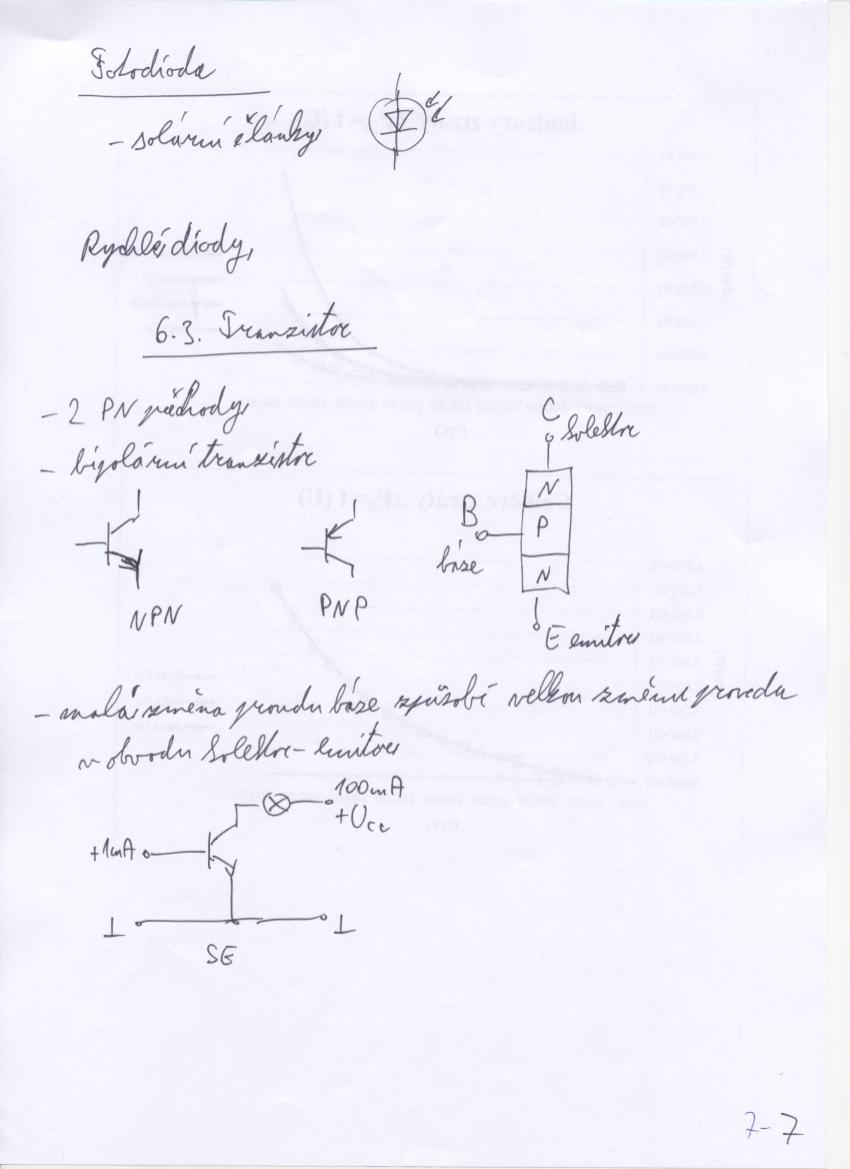 Fotodioda
- solární články
Rychlé diody
6.3. Tranzistor
- 2 PN přechody
- bipolární tranzistor
NPN
PNP
C
kolektor
N
B
P
báze
N
E emitor
- malá změna proudu báze způsobí velkou změnu proudu
v obvodu kolektor-emitor
100mA
+Ucc
+1mA
SE
7-7